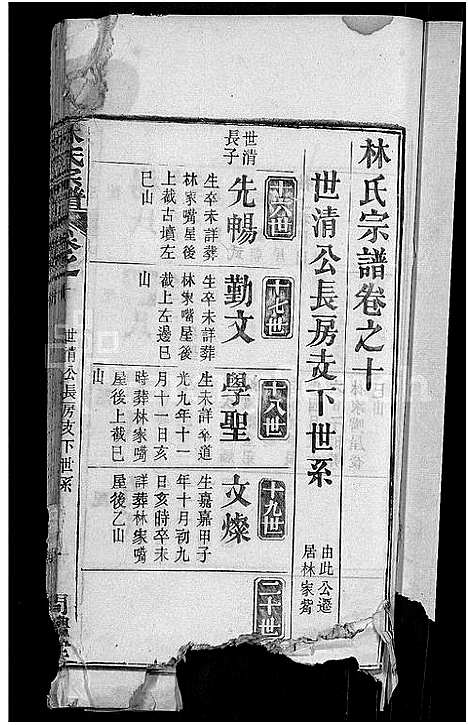 林氏宗譜卷之十
世清公長房支下世系
由此公遷
居林家嘴
十六世
十七世
十八世
十九世
二十世
世清
長子
先暢
生卒未詳葬
林家嘴屋後
上截古墳左
巳山
勤文
生卒未詳葬
林家嘴屋後
截上左邊巳
山
學聖
生未詳卒道
光九年十一
月十一日亥
時葬林家嘴
屋後上截巳
山
文燦
生嘉嘉甲子
年十月初九
日亥時卒未
詳葬林家嘴
屋後乙山
林氏宗譜
卷之十
世清公長房支下世系